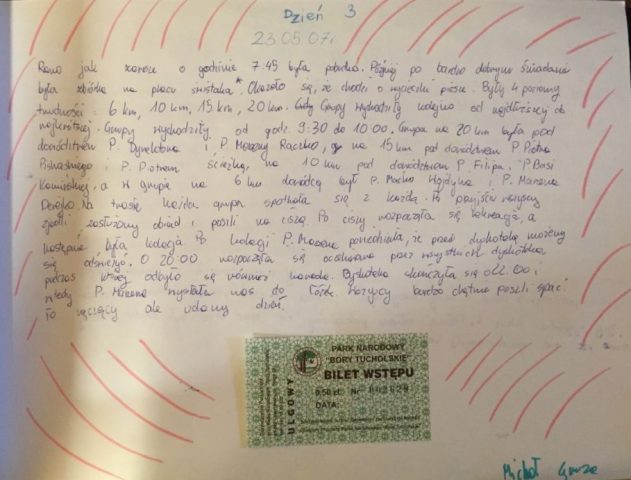 Dzień 3
23.05.07r.
Rano jak zawsze o godzinie 7:45 była pobudka. Później po bardzo dobrym śniadaniu
była zbiórka na placu świstaka*. Okazało się, że chodzi o wycieczki piesze. Były 4 poziomy
trudności: 6 km, 10 km, 15 km, 20 km. Grupy wychodziły kolejno od najdłuższej do
najkrótszej. Grupy wychodziły od godz. 9:30 do 10:00. Grupa na 20 km była pod
dowództwem P. Dyrektora i P. Marzeny Raczko, na 15 km pod dowództwem P. Piotra
i P. Piotrem Ścieżką, na 10 km pod dowództwem P. Filipa i P. Basi
a w grupie na 6 km dowódcą był P. Maciek Wojdyna i P. Marzena
Na trasie każda grupa spotkała się z każdą. Po przyjściu wszyscy
zjedli zasłużony obiad i poszli na ciszę. Po ciszy rozpoczęła się rekreacja, a
następnie była kolacja. Po kolacji P. Marzena powiedziała, że przed dyskoteką możemy
się odświeżyć. O 20:00 rozpoczęła się oczekiwana przez wszystkich dyskoteka,
podczas której odbyło się również karaoke. Dyskoteka skończyła się o 22:00 i
wtedy P. Marzena wysłała nas do łóżek. Wszyscy bardzo chętnie poszli spać.
To męczący ale udany dzień.
PARK NARODOWY
"BORY TUCHOLSKIE"
BILET WSTĘPU
ULGOWY
0,50 zł. Nr
DATA:
Michał